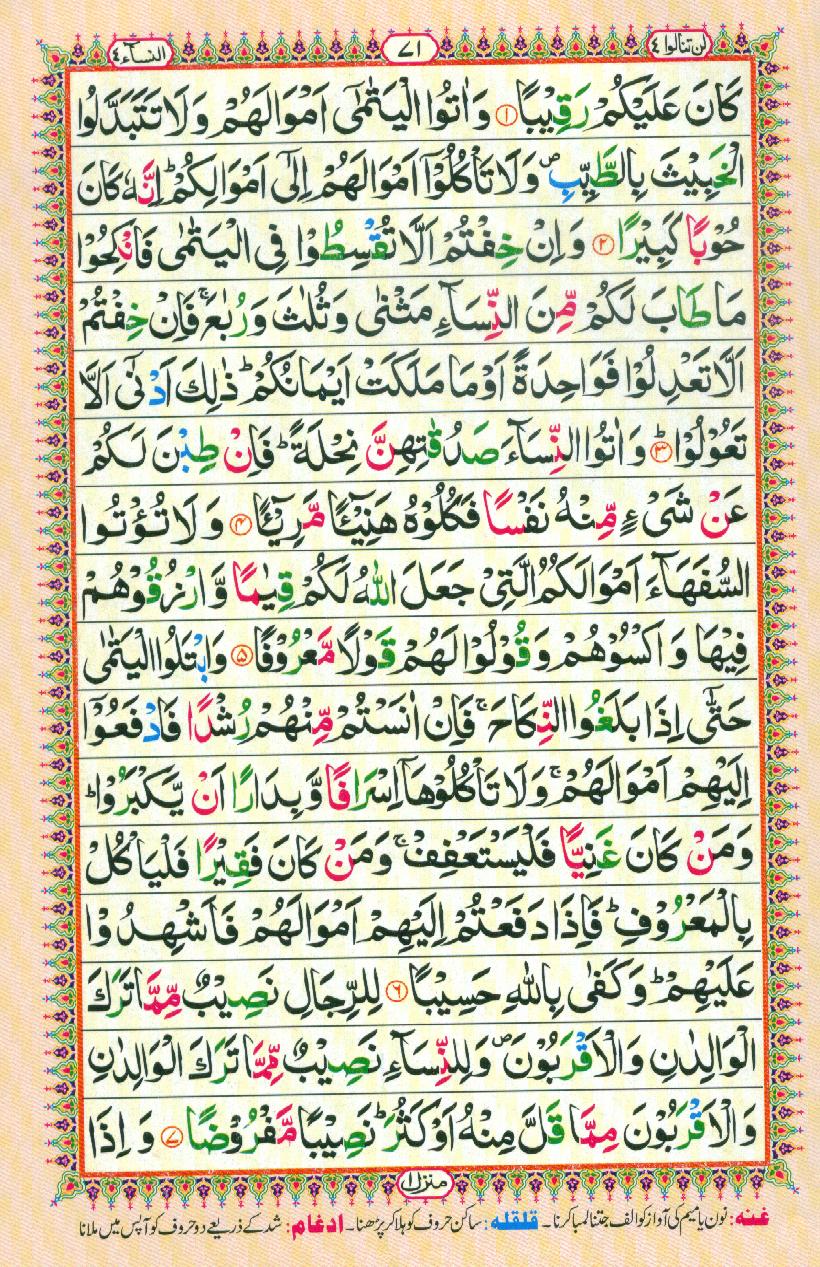 لن تنالوا ٤
٧١
النسآء ٤
كَانَ عَلَيْكُمْ رَقِيْبًا ۝١ وَاٰتُوا الْيَتٰمٰٓى اَمْوَالَهُمْ وَلَا تَتَبَدَّلُوا
الْخَبِيْثَ بِالطَّيِّبِ ۪ وَلَا تَاْكُلُوْۤا اَمْوَالَهُمْ اِلٰۤى اَمْوَالِكُمْ ؕ اِنَّهٗ كَانَ
حُوْبًا كَبِيْرًا ۝٢ وَاِنْ خِفْتُمْ اَلَّا تُقْسِطُوْا فِى الْيَتٰمٰى فَانْكِحُوْا
مَا طَابَ لَكُمْ مِّنَ النِّسَآءِ مَثْنٰى وَثُلٰثَ وَرُبٰعَ ۚ فَاِنْ خِفْتُمْ
اَلَّا تَعْدِلُوْا فَوَاحِدَةً اَوْ مَا مَلَكَتْ اَيْمَانُكُمْ ؕ ذٰلِكَ اَدْنٰٓى اَلَّا
تَعُوْلُوْا ؕ۝٣ وَاٰتُوا النِّسَآءَ صَدُقٰتِهِنَّ نِحْلَةً ؕ فَاِنْ طِبْنَ لَكُمْ
عَنْ شَیْءٍ مِّنْهُ نَفْسًا فَكُلُوْهُ هَنِيْٓـًٔا مَّرِيْٓـًٔا ۝٤ وَلَا تُؤْتُوا
السُّفَهَآءَ اَمْوَالَكُمُ الَّتِىْ جَعَلَ اللّٰهُ لَكُمْ قِيٰمًا وَّارْزُقُوْهُمْ
فِيْهَا وَاكْسُوْهُمْ وَقُوْلُوْا لَهُمْ قَوْلًا مَّعْرُوْفًا ۝٥ وَابْتَلُوا الْيَتٰمٰى
حَتّٰۤى اِذَا بَلَغُوا النِّكَاحَ ۚ فَاِنْ اٰنَسْتُمْ مِّنْهُمْ رُشْدًا فَادْفَعُوْۤا
اِلَيْهِمْ اَمْوَالَهُمْ ۚ وَلَا تَاْكُلُوْهَاۤ اِسْرَافًا وَّبِدَارًا اَنْ يَّكْبَرُوْا ؕ
وَمَنْ كَانَ غَنِيًّا فَلْيَسْتَعْفِفْ ۚ وَمَنْ كَانَ فَقِيْرًا فَلْيَاْكُلْ
بِالْمَعْرُوْفِ ؕ فَاِذَا دَفَعْتُمْ اِلَيْهِمْ اَمْوَالَهُمْ فَاَشْهِدُوْا
عَلَيْهِمْ ؕ وَكَفٰى بِاللّٰهِ حَسِيْبًا ۝٦ لِلرِّجَالِ نَصِيْبٌ مِّمَّا تَرَكَ
الْوَالِدٰنِ وَالْاَقْرَبُوْنَ ۪ وَلِلنِّسَآءِ نَصِيْبٌ مِّمَّا تَرَكَ الْوَالِدٰنِ
وَالْاَقْرَبُوْنَ مِمَّا قَلَّ مِنْهُ اَوْ كَثُرَ ؕ نَصِيْبًا مَّفْرُوْضًا ۝٧ وَاِذَا
منزل ١
غنه: نون یا میم کی آواز کو الف جتنا لمبا کرنا۔ قلقله: ساکن حروف کو ہلا کر پڑھنا۔ ادغام: شد کے ذریعے دو حروف کو آپس میں ملانا